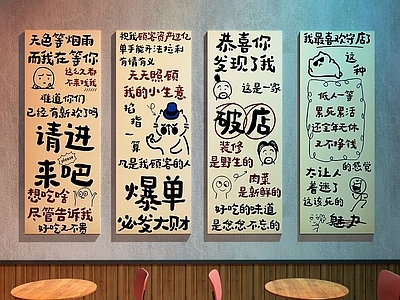 天色等烟雨
而我在等你
这么久都
不来找我
难道你们
已经有新欢了吗
请进
来吧
想吃啥
尽管告诉我
好吃又不胃
祝我顾客资产过亿
单手能开法拉利
有情有义
天天照顾
我的小生意
掐
指
一
算
凡是我顾客的人
爆单
必发大财
恭喜你
发现了我
这是一家
破店
装修
是野生的
肉菜
是新鲜的
好吃的味道
是忽忽不忘的
我最喜欢守店了
这
种
低人一等
累死累活
还全年无休
又不挣钱
的感觉
太让人
着迷了
这该死的
魅力